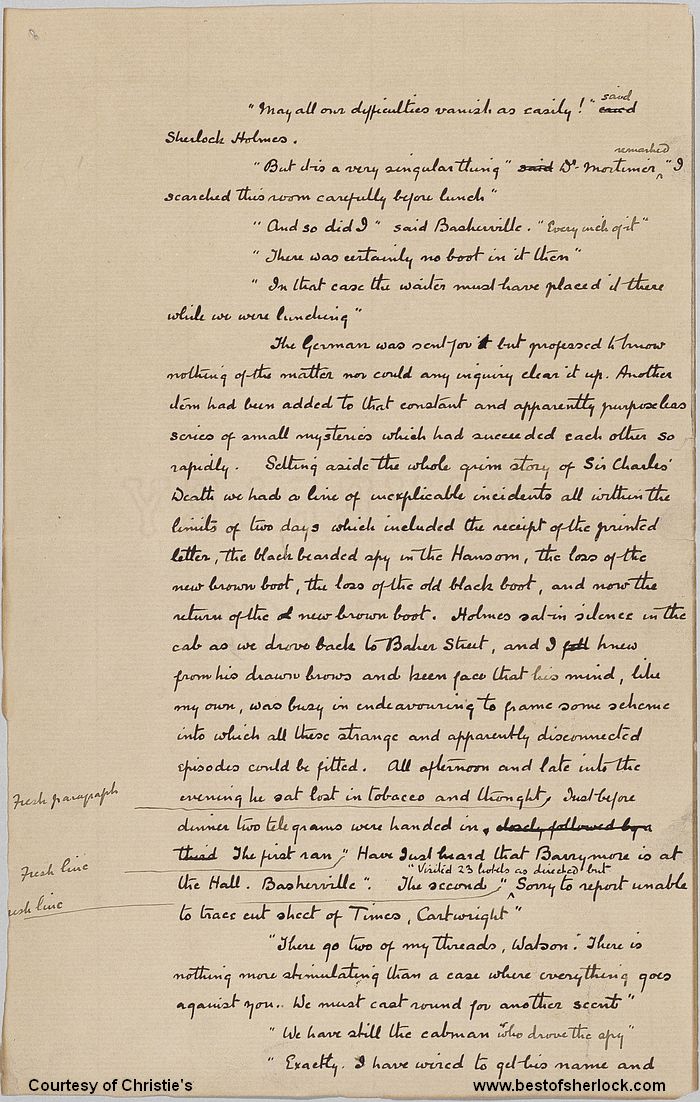 8
"May all our difficulties vanish as easily!" cried said
Sherlock Holmes.
"But it is a very singular thing" said Dr. Mortimer remarked, "I
searched this room carefully before lunch"
"And so did I" said Baskerville. "Every inch of it"
"There was certainly no boot in it then"
"In that case the waiter must have placed it there
while we were lunching"
The German was sent for but professed to know
nothing of the matter nor could any inquiry clear it up. Another
item had been added to that constant and apparently purposeless
series of small mysteries which had succeeded each other so
rapidly. Setting aside the whole grim story of Sir Charles'
Death we had a line of inexplicable incidents all within the
limits of two days which included the receipt of the printed
letter, the black bearded spy in the Hansom, the loss of the
new brown boot, the loss of the old black boot, and now the
return of the new brown boot. Holmes sat in silence in the
cab as we drove back to Baker Street, and I knew
from his drawn brows and keen face that his mind, like
my own, was busy in endeavouring to frame some scheme
into which all these strange and apparently disconnected
episodes could be fitted. All afternoon and late into the
evening he sat lost in tobacco and thought. Just before
Fresh paragraph
dinner two telegrams were handed in, closely followed by a
third The first ran, "Have just heard that Barrymore is at
Fresh line
"Visited 23 hotels as directed but
the Hall. Baskerville". The second, "Sorry to report unable
resh line
to trace cut sheet of Times, Cartwright"
"There go two of my threads, Watson. There is
nothing more stimulating than a case where everything goes
against you.. We must cast round for another scent"
"We have still the cabman who drove the spy"
"Exactly. I have wired to get his name and
Courtesy of Christie's
www.bestofsherlock.com